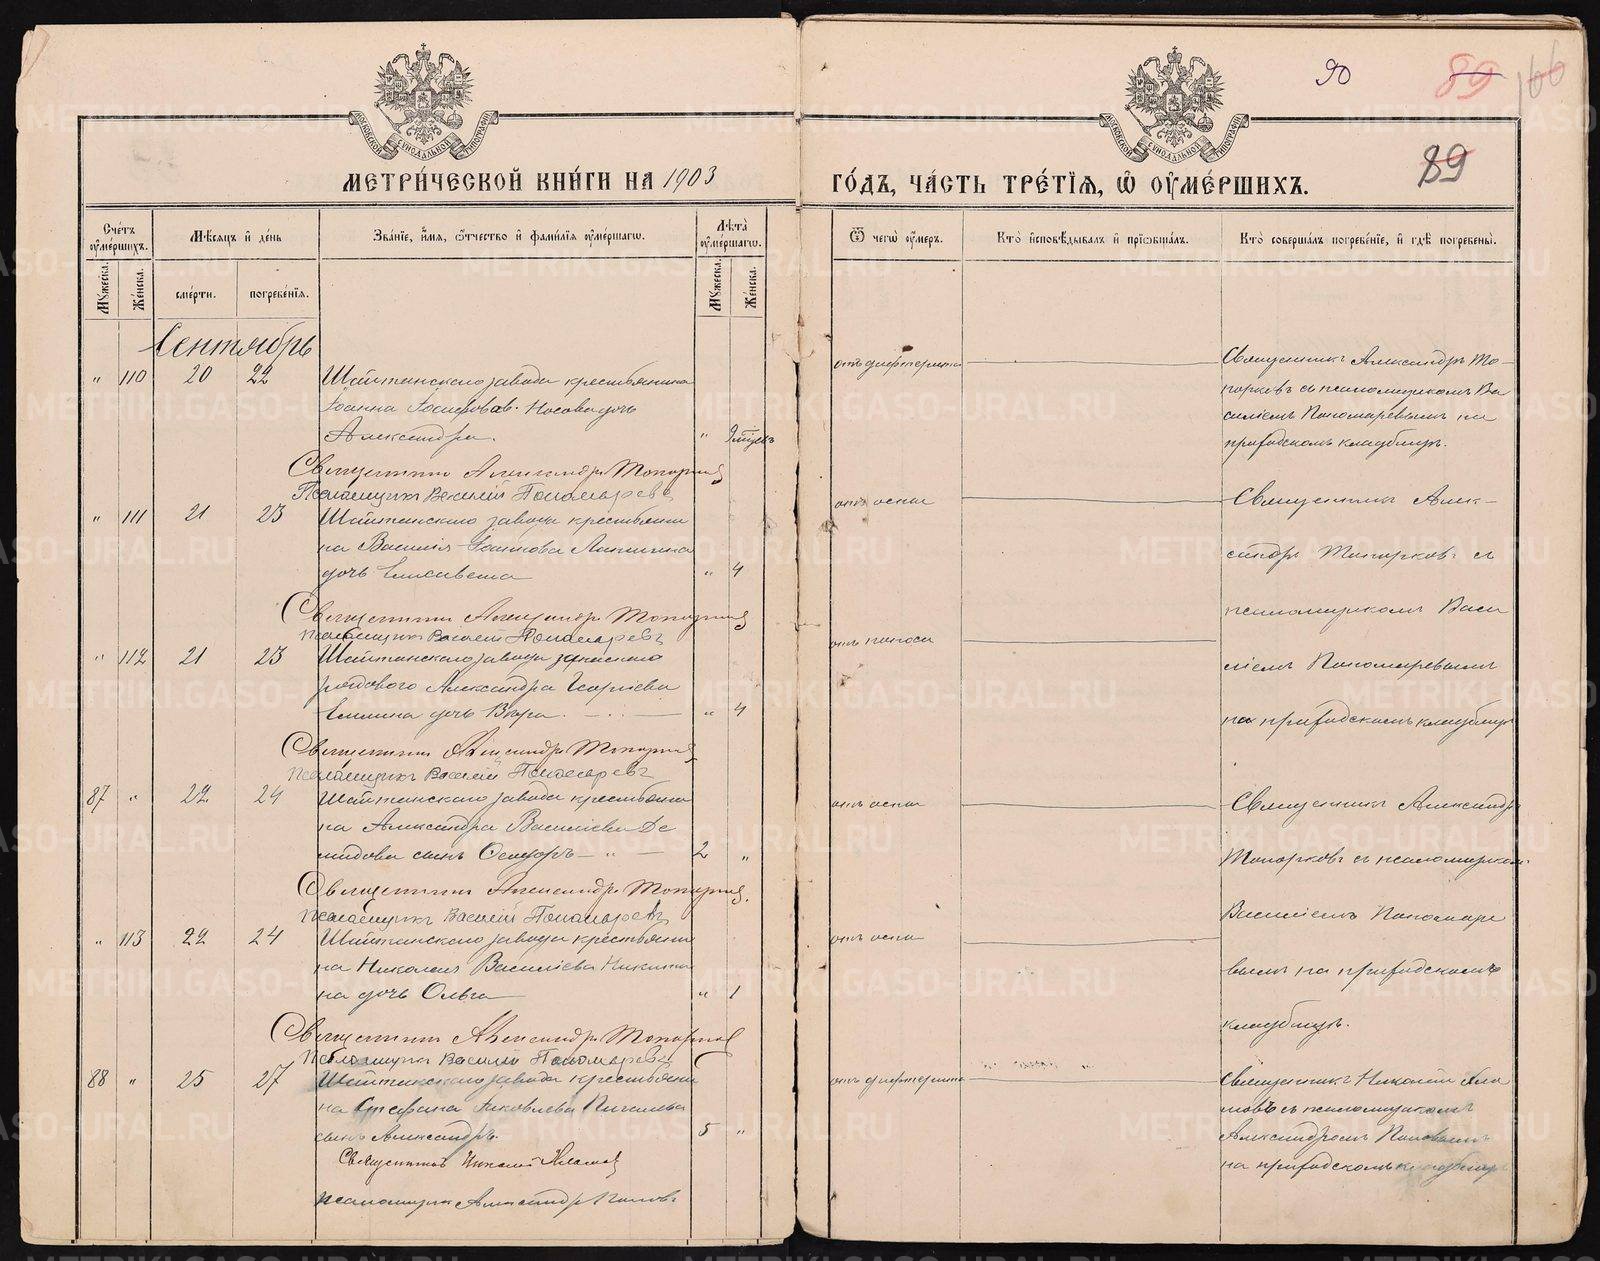 90
89
166
89
МЕТРИЧЕСКОЙ КНИГИ НА 1903
ГОДЪ, ЧАСТЬ ТРЕТІЯ, Ѽ ОУМЕРШИХЪ.
Счетъ оумершихъ.
Мѣсяцъ и день
Званіе, имя, отчество и фамилія оумершагѡ.
Лѣта оумершагѡ.
Ѿ чегѡ оумеръ.
Кто исповѣдывалъ и пріѡбщалъ.
Кто совершалъ погребеніе, и гдѣ погребены.
Мужеска.
Женска.
смерти.
погребенія.
Мужеска.
Женска.
Сентябрь
" 110 20 22 Шайтанскаго завода крестьянина
Іоанна Іосифова Носова дочь
Александра. "
отъ дифтерита
Священникъ Александръ То-
порковъ съ псаломщикомъ Ва
силіемъ Пономаревымъ на
приходскомъ кладбищѣ.
Священникъ Александръ Топорковъ
Псаломщикъ Василій Пономаревъ
" 111 21 23 Шайтанскаго завода крестьяни
на Василія
дочь Елисавета " 4
отъ оспы
Священникъ Алек-
сандръ Топорковъ съ
псаломщикомъ Васи
ліемъ Пономаревымъ
на приходскомъ кладбищѣ
Священникъ Александръ Топорковъ
Псаломщикъ Василій Пономаревъ
" 112 21 23 Шайтанскаго завода запаснаго
рядового Александра Георгіева
дочь Вѣра. " 4
отъ поноса
Священникъ Александръ Топорковъ
Псаломщикъ Василій Пономаревъ
87 " 22 24 Шайтанскаго завода крестьяни
на Александра Василіева Де
мидова сынъ Ѳеодоръ 2 "
отъ оспы
Священникъ Александръ
Топорковъ съ псаломщикомъ
Василіемъ Пономаре
вымъ на приходскомъ
кладбищѣ.
Священникъ Александръ Топорковъ
Псаломщикъ Василій Пономаревъ
" 113 22 24 Шайтанскаго завода крестьяни
на Николая Василіева Никити
на дочь Ольга " 1
отъ оспы
Священникъ Александръ Топорковъ
Псаломщикъ Василій Пономаревъ
88 " 25 27 Шайтанскаго завода крестьяни
на Стефана Яковлева
сынъ Александръ. 5 "
отъ дифтерита
Священникъ Николай
съ псаломщикомъ
Александромъ Поповымъ
на приходскомъ кладбищѣ
Священникъ Николай
псаломщикъ Александръ Поповъ
METRIKI.GASO-URAL.RU